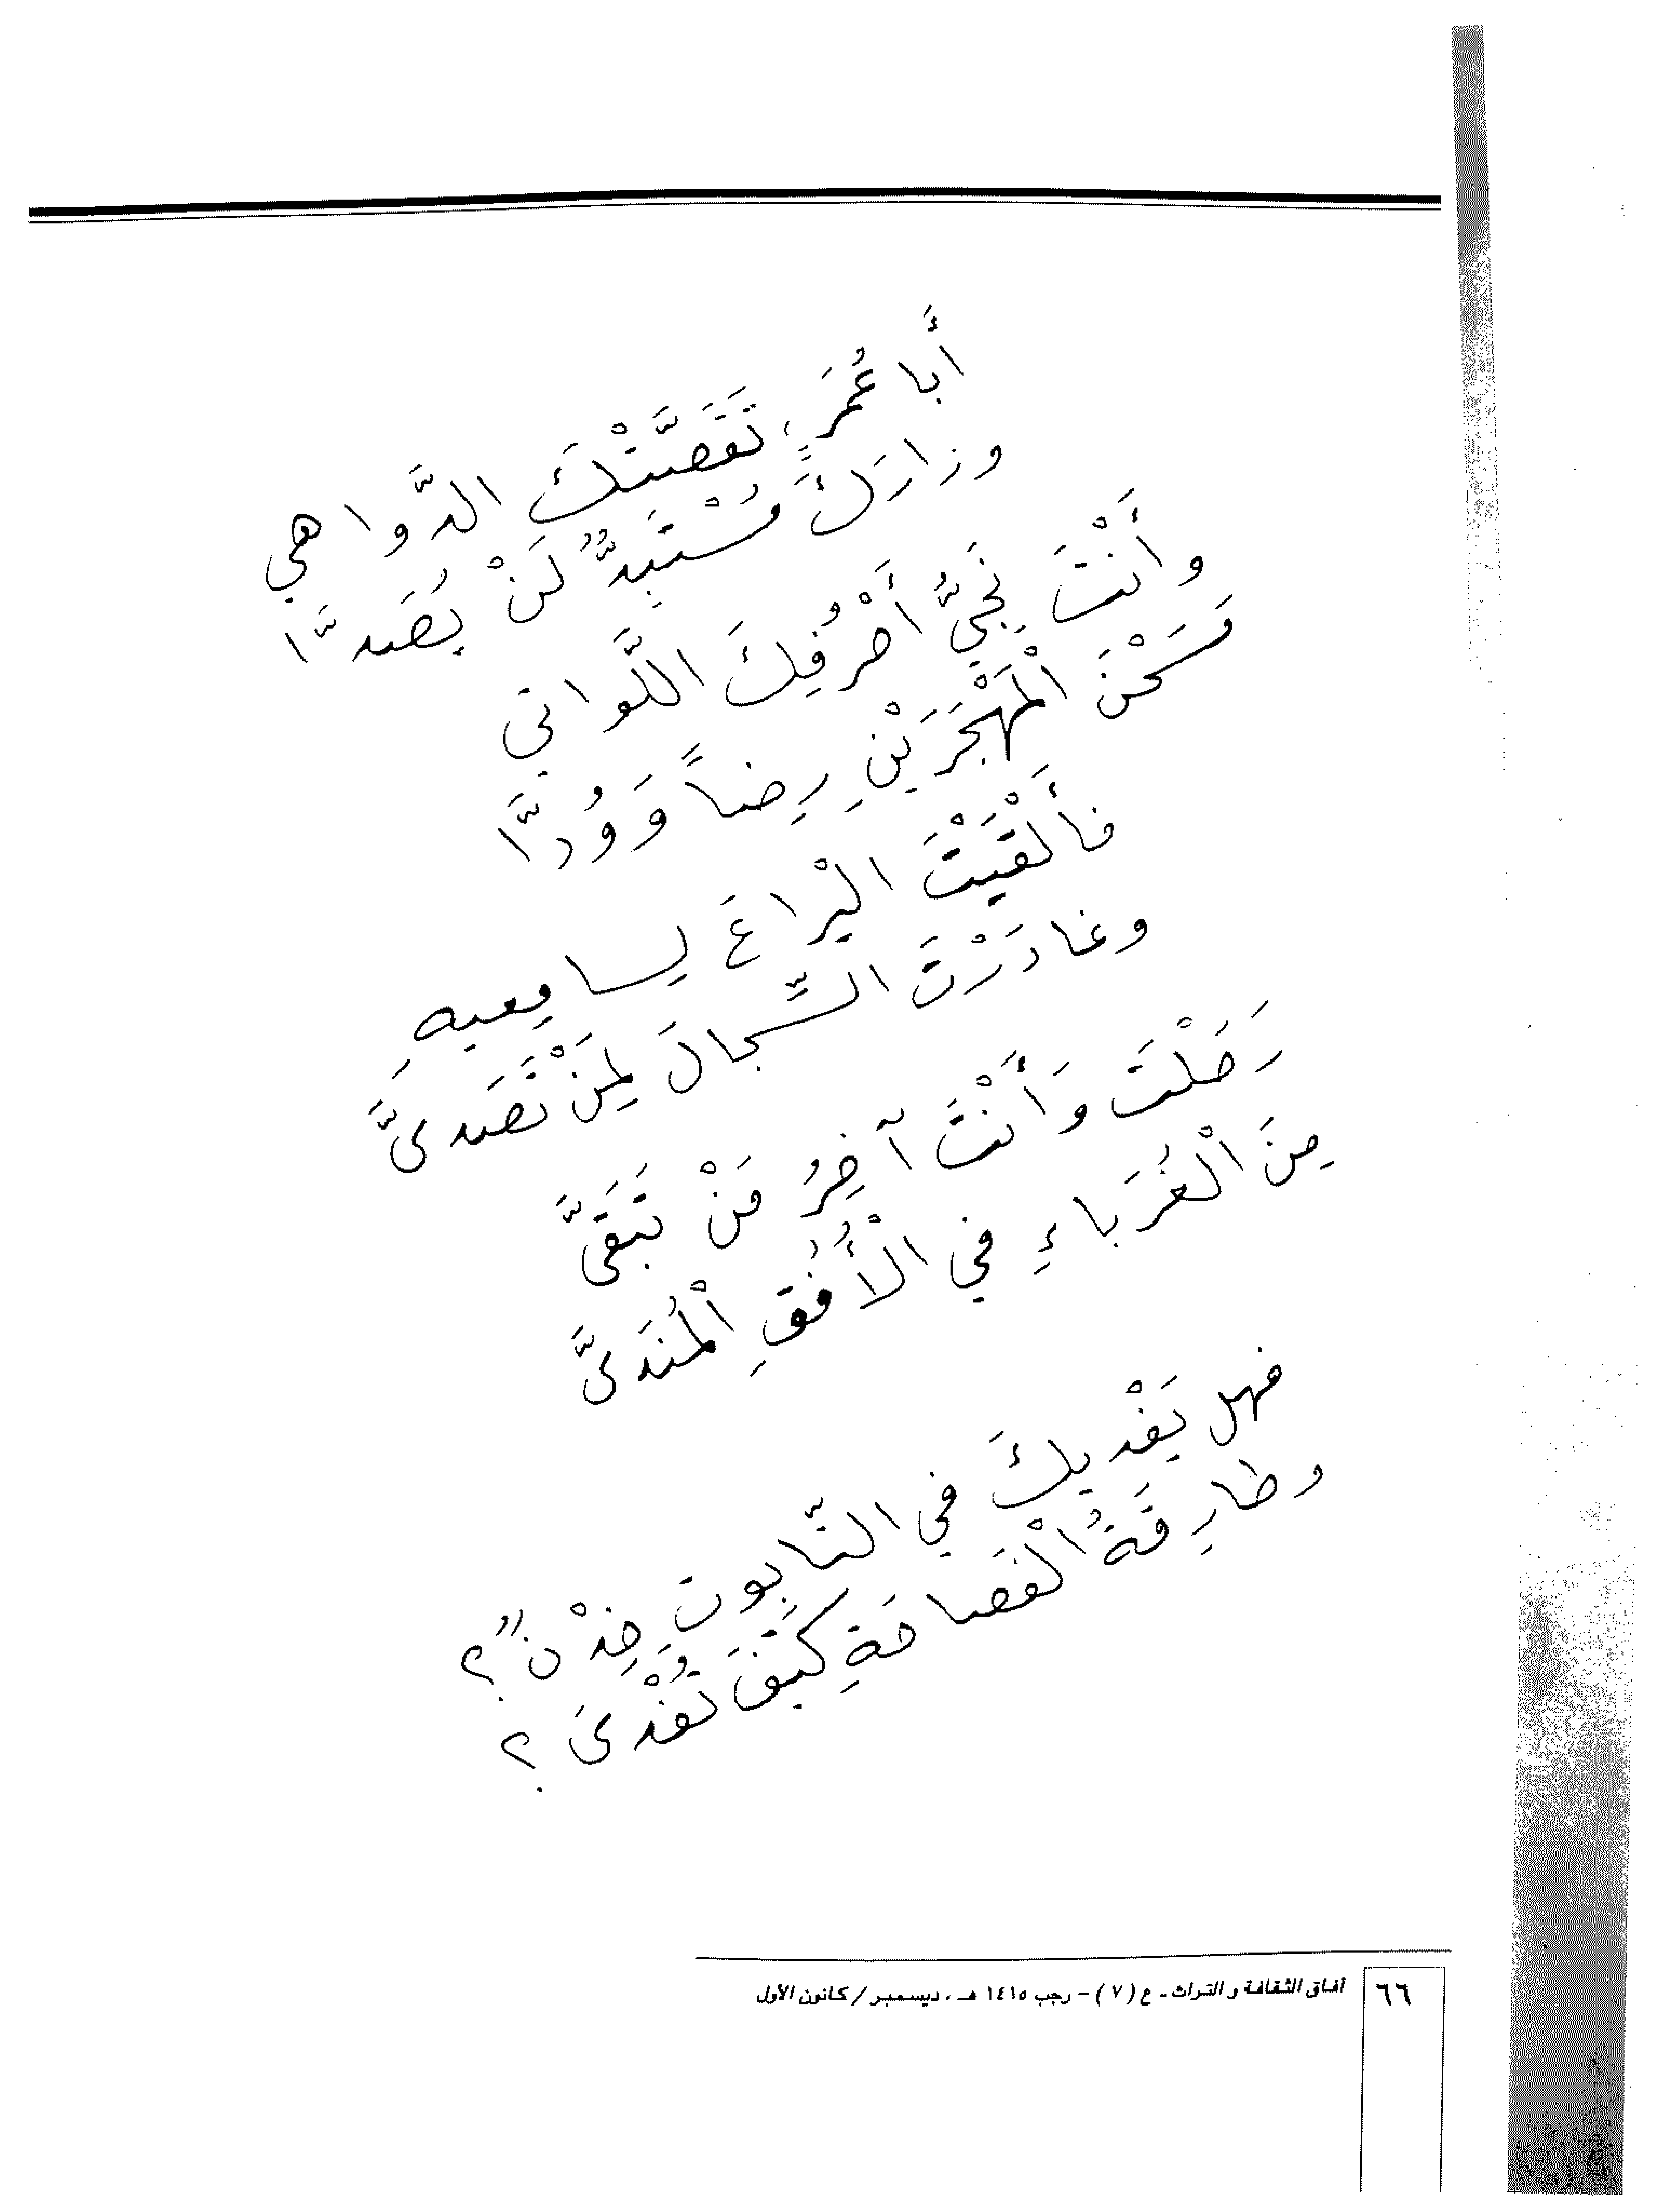 أَبا عُمَرٍ، تَقَصَّتْكَ الدَّواهي
وزارَكَ مُسْتَبِدٌّ لَنْ يُصَدَّا
وأَنْتَ نَجِيُّ أَحْرُفِكَ اللَّواتي
مَسَحْنَ الْمَهْجَرَيْنِ رِضاً وَوُدَّا
فأَلْقَيْتَ الْيراعَ لِسامِعيهِ
وغادَرْتَ السِّجالَ لِمَنْ تَصَدىَّ
رَحَلْتَ وَأَنْتَ آخِرُ مَنْ تَبَقىَّ
مِنَ الْغُرَباءِ في الْأُفُقِ الْمُنَدىَّ
فهل يَفْديكَ في التّابوتِ خِدْنٌ؟
وطارِقَةُ الْفَصاحَةِ كَيْفَ تُفْدىَ؟
٦٦ آفاق الثقافة والتراث - ع (٧) - رجب ١٤١٥ هـ ، ديسمبر / كانون الأول